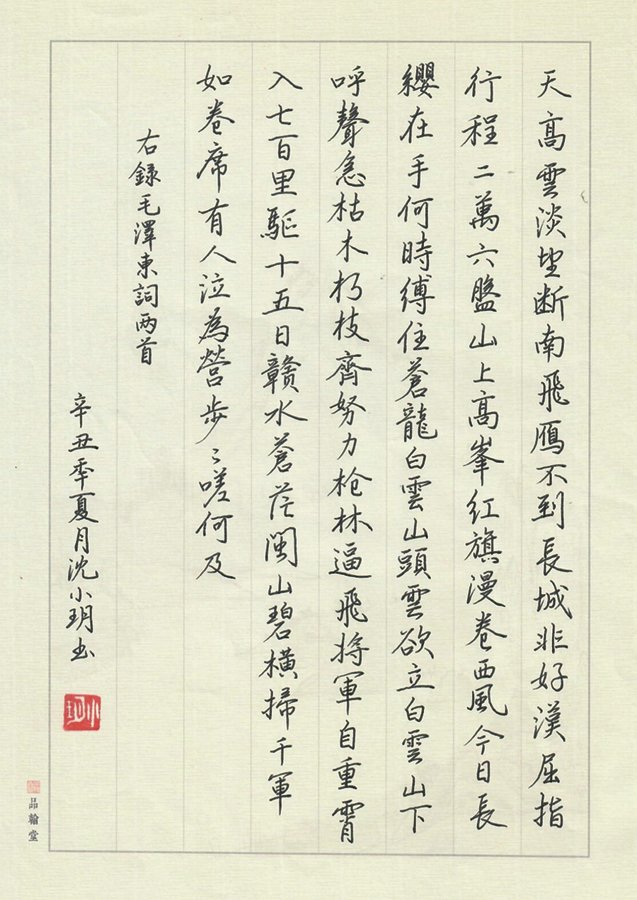 天高雲淡望断南飛鴈不到長城非好漢屈指
行程二萬六盤山上高峯紅旗漫卷西風今日長
纓在手何時縛住蒼龍白雲山頭雲欲立白雲山下
呼聲急枯木朽枝齊努力枪林逼飛將軍自重霄
入七百里驅十五日贛水蒼茫閩山碧橫掃千軍
如卷席有人泣為營步〻嗟何及
右錄毛澤東詞两首
辛丑季夏月沈小玥书
小玥
品翰堂